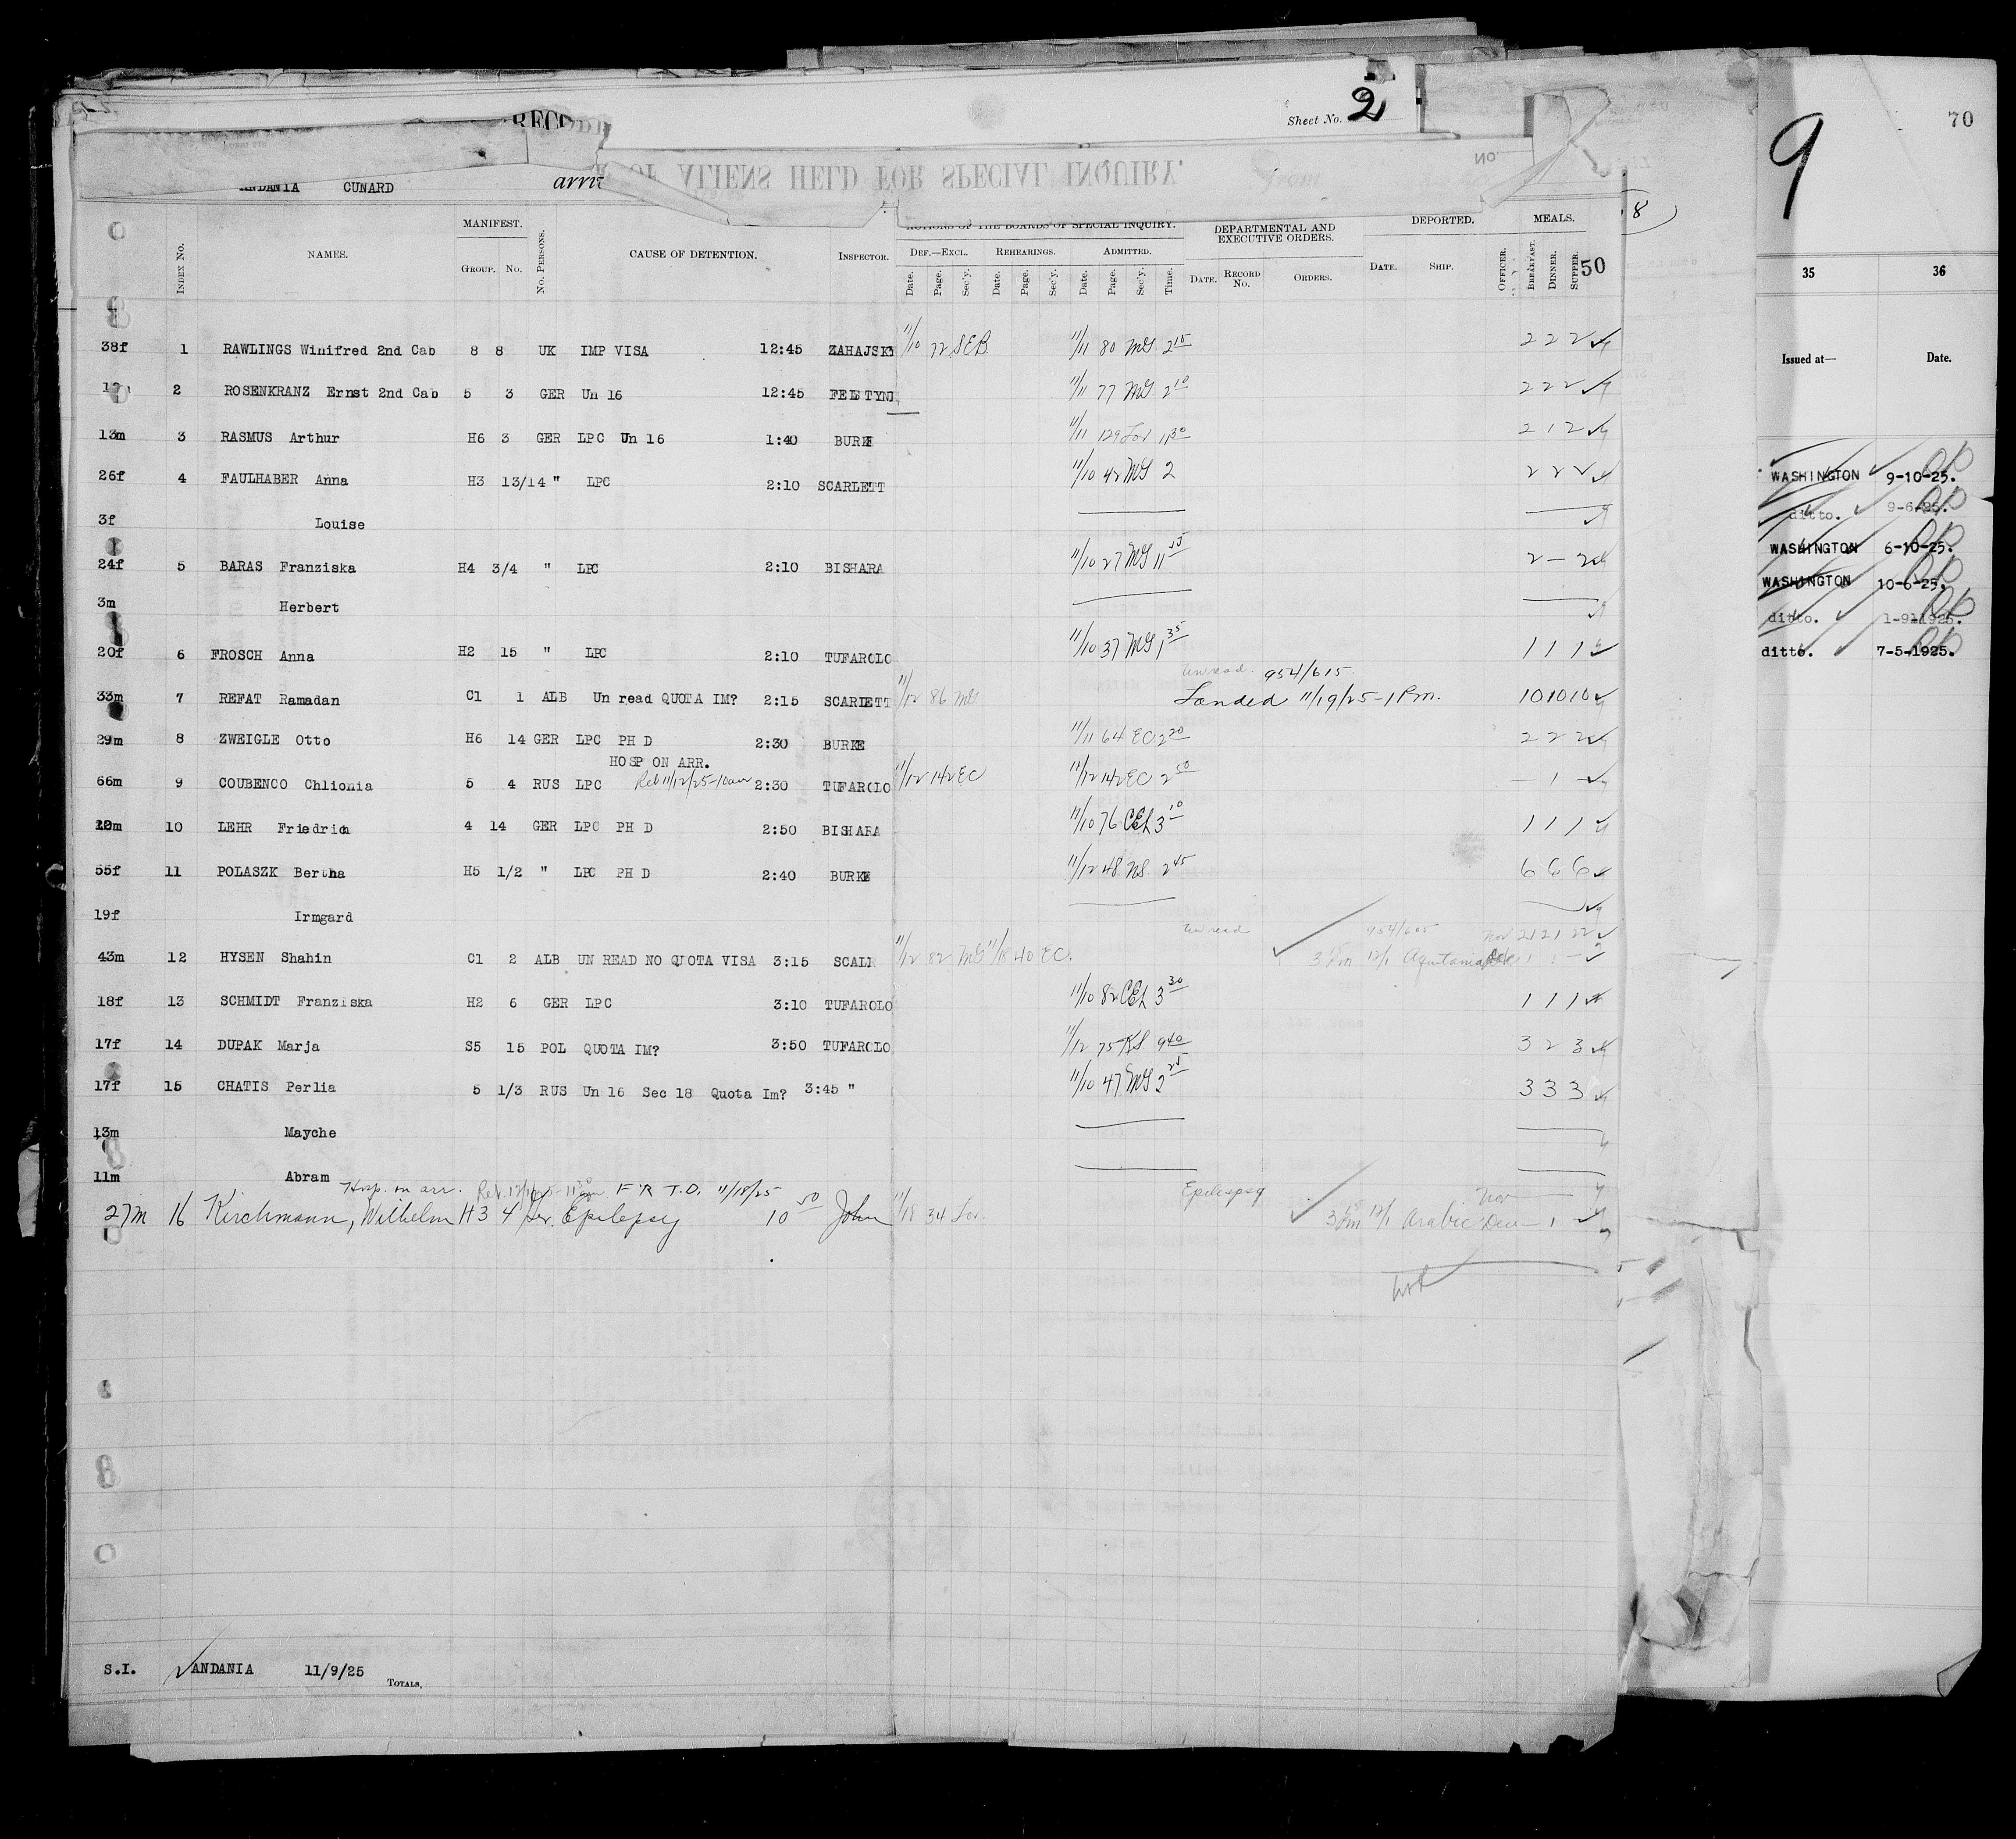 RECORD
Sheet No. 2
OF ALIENS HELD FOR SPECIAL INQUIRY.
ANDANIA CUNARD
9
70
8
INDEX No.
NAMES.
MANIFEST.
GROUP. No.
No. PERSONS.
CAUSE OF DETENTION.
INSPECTOR.
ACTIONS OF THE BOARDS OF SPECIAL INQUIRY.
DEF.—EXCL. REHEARINGS. ADMITTED.
Date. Page. Sec'y. Date. Page. Sec'y. Date. Page. Sec'y. Time.
DEPARTMENTAL AND EXECUTIVE ORDERS.
DATE. RECORD No. ORDERS.
DEPORTED.
DATE. SHIP.
OFFICER.
MEALS.
BREAKFAST. DINNER. SUPPER.
50
38f 1 RAWLINGS Winifred 2nd Cab 8 8 UK IMP VISA 12:45 ZAHAJSKY 11/10 72 SEB 11/11 80 MG 2 15 2 2 2
2 ROSENKRANZ Ernst 2nd Cab 5 3 GER Un 16 12:45 11/11 77 MG 2 10 2 2 2
13m 3 RASMUS Arthur H6 3 GER LPC Un 16 1:40 BURKE 11/11 129 11 30 2 1 2
26f 4 FAULHABER Anna H3 13/14 " LPC 2:10 SCARLETT 11/10 42 MG 2 2 2 2
3f Louise
24f 5 BARAS Franziska H4 3/4 " LPC 2:10 BISHARA 11/10 27 MG 11 55 2 — 2
3m Herbert
20f 6 FROSCH Anna H2 15 " LPC 2:10 TUFAROLO 11/10 37 MG 1 35 1 1 1
unread. 954/615
33m 7 REFAT Ramadan C1 1 ALB Un read QUOTA IM? 2:15 SCARLETT 11/12 86 MG Landed 11/19/25-1 Pm. 10 10 10
29m 8 ZWEIGLE Otto H6 14 GER LPC PH D 2:30 BURKE 11/11 64 EC 2 20 2 2 2
HOSP ON ARR.
66m 9 COUBENCO Chlionia 5 4 RUS LPC Rel 11/12/25-10am 2:30 TUFAROLO 11/12 142 EC 11/12 142 EC 2 50 — 1 —
10 LEHR Friedrich 4 14 GER LPC PH D 2:50 BISHARA 11/10 76 CEL 3 10 1 1 1
55f 11 POLASZK Bertha H5 1/2 " LPC PH D 2:40 BURKE 11/12 48 NS. 2 45 6 6 6
19f Irmgard
unread 954/605 Nov 21 21 22
43m 12 HYSEN Shahin C1 2 ALB UN READ NO QUOTA VISA 3:15 11/12 82 MG 11/18 40 EC. 12/1 Aquitania
18f 13 SCHMIDT Franziska H2 6 GER LPC 3:10 TUFAROLO 11/10 82 CEL 3 30 1 1 1
17f 14 DUPAK Marja S5 15 POL QUOTA IM? 3:50 TUFAROLO 11/12 75 9 40 3 2 3
17f 15 CHATIS Perlia 5 1/3 RUS Un 16 Sec 18 Quota Im? 3:45 " 11/10 47 MG 2 25 3 3 3
13m Mayche
11m Abram
Hosp. on arr. T.D. 11/18/25 Epilepsy Nov
27m 16 Kirchmann, Wilhelm H3 4 Ger. Epilepsy 10 50 John 11/18 34 12/1 Arabic Dec — 1
S.I. ANDANIA 11/9/25
TOTALS,
35 36
Issued at— Date.
WASHINGTON 9-10-25.
ditto. 9-6-25.
WASHINGTON 6-10-25.
WASHINGTON 10-6-25.
ditto. 1-9-1925.
ditto. 7-5-1925.